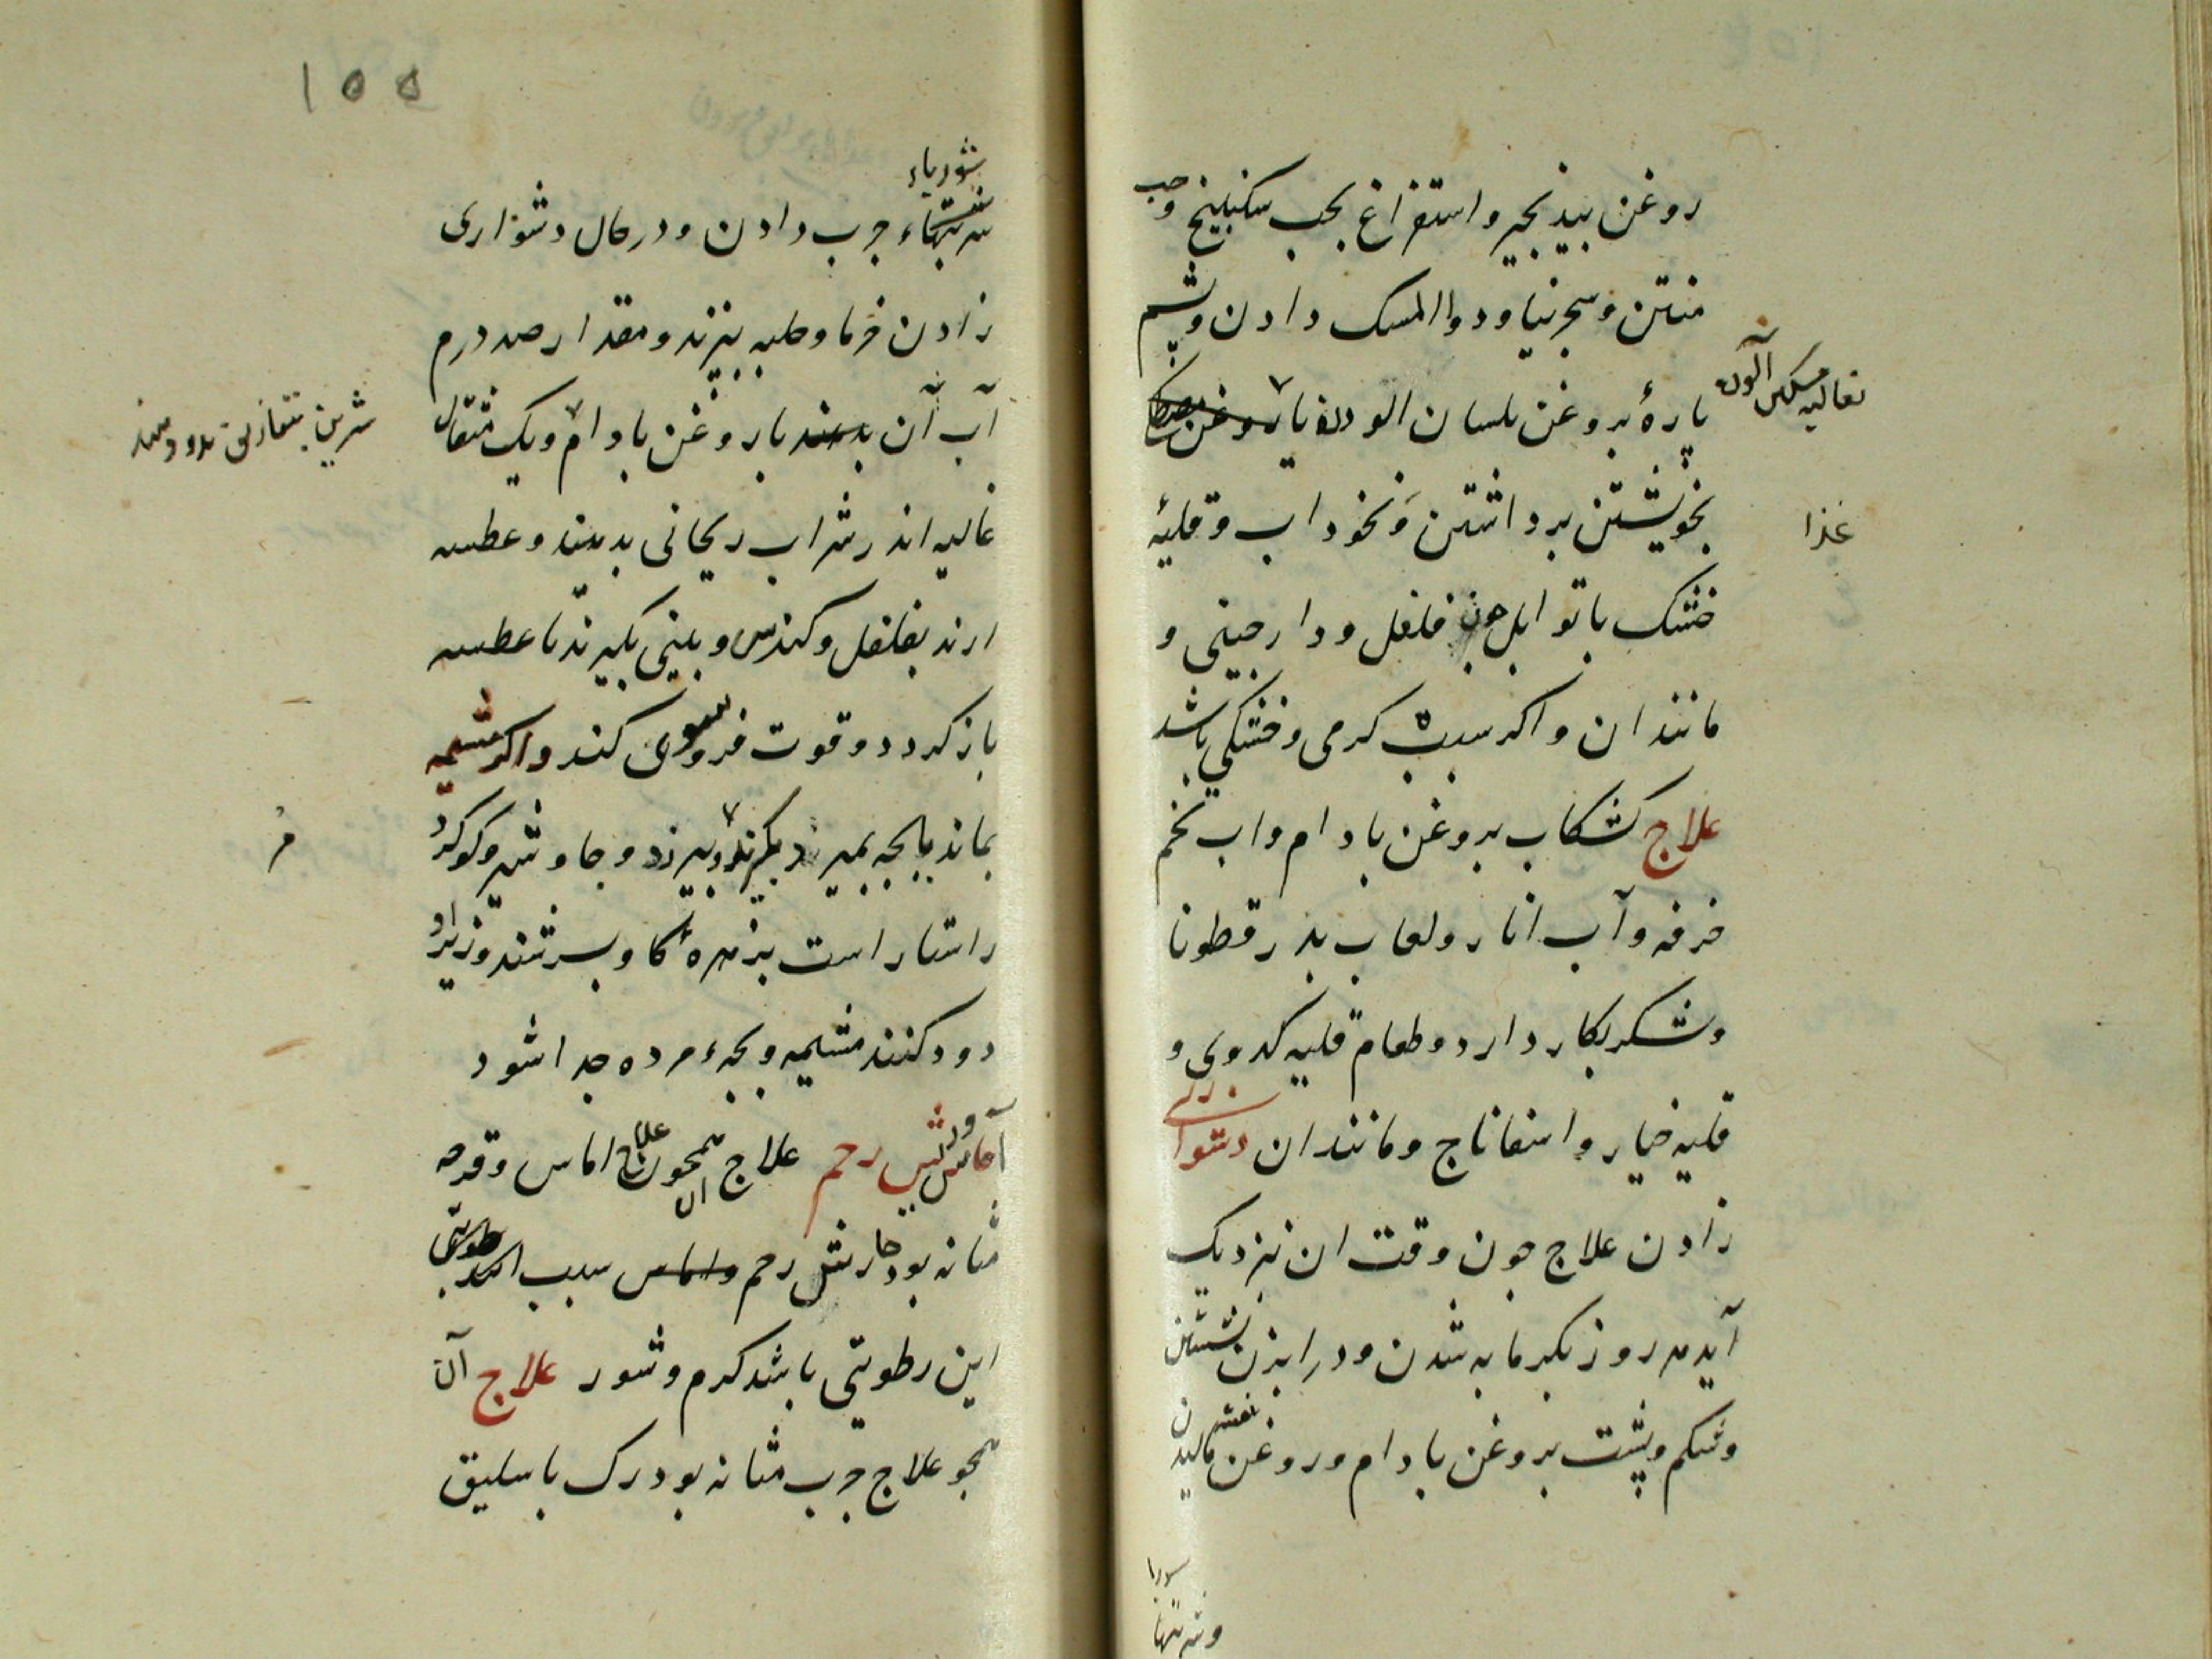 روغن بیدنجیر و استفراغ بحب سکبینج وحب
منتن و سجرنیا و دوا المسک دادن و پشم
پارهٔ بروغن بلسان الوده یا بروغن
بغالیه مسکین آلوده
بخویشتن برداشتن و نخوداب و قلیهٔ
غذا
خشک با توابل چون فلفل و دارجینی و
مانند ان و اکر سبب کرمی و خشکی باشد
علاج کشکاب بروغن بادام و اب تخم
خرفه و آب انار و لعاب بذر قطونا
و شکر بکار دارد و طعام قلیه کدوی و
قلیه خیار و اسفاناج و مانند ان دشواری
زادن علاج جون وقت ان نزدیک
آید هر روز بکرمابه شدن و در ابزن نشستن
و شکم و پشت بروغن بادام و روغن بنفشه مالیدن
شوربا
شوربا
جرب دادن و در حال دشواری
زادن خرما و حلبه بپزند و مقدار صد درم
آب آن بدهند با روغن بادام و یک مثقال
غالیه اندر شراب ریحانی بدهند و عطسه
ارند بفلفل و کندس و بینی بکیرند تا عطسه
باز کردد و قوت فرو سوی کند و اکر مشیمه
بماند یا بجه بمیرد بکیرند و جاوشیر و کوکرد
راستا راست بزهرهٔ کاو بسرشند و زیر او
دود کنند مشیمه و بجهء مرده جدا شود
آماس و ریش رحم علاج آن همجون علاج اماس و قرحه
مثانه بود خارش رحم سبب
این رطوبتی باشد کرم و شور علاج آن
همجو علاج جرب مثانه بود رک باسلیق